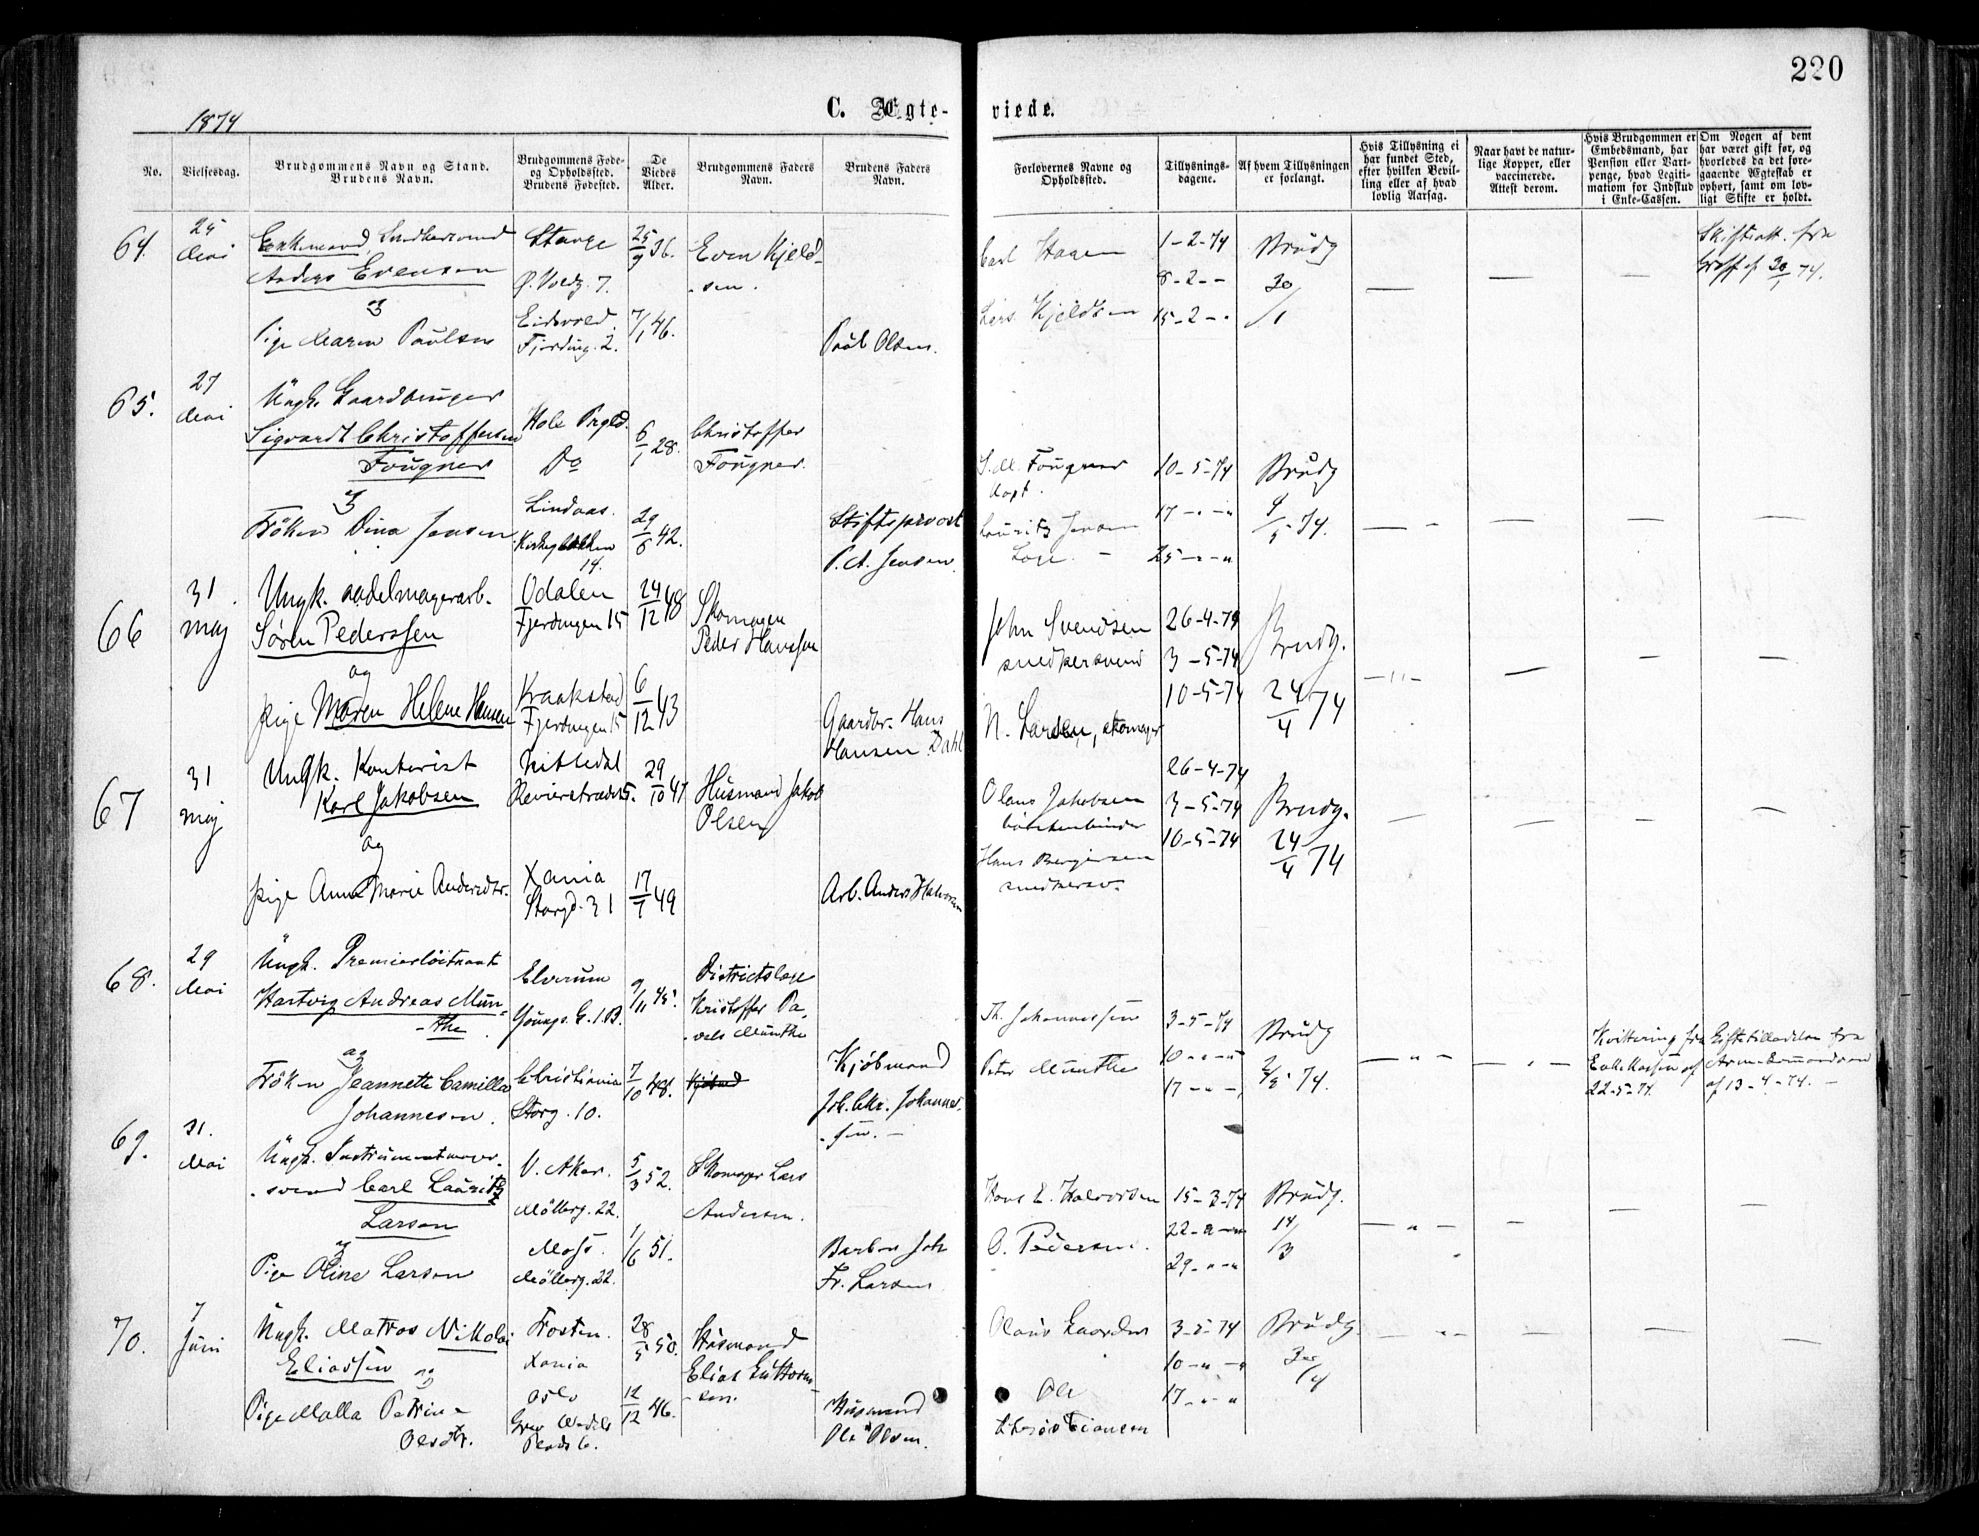 220
1874
C. Ægte-
viede.
No.
Vielsesdag.
Brudgommens Navn og Stand.
Brudens Navn.
Brudgommens Føde-
og Opholdssted.
Brudens Fødested.
De
Viedes
Alder.
Brudgommens Faders
Navn.
Brudens Faders
Navn.
Forlovernes Navne og
Opholdssted.
Tillysnings-
dagene.
Af hvem Tillysningen
er forlangt.
Hvis Tillysning ei
har fundet Sted,
efter hvilken Bevil-
ling eller af hvad
lovlig Aarsag.
Naar havt de natur-
lige Kopper, eller
vaccinerede.
Attest derom.
Hvis Brudgommen er
Embedsmand, har
Pension eller Vart-
penge, hvad Legiti-
mation for Indskud
i Enke-Cassen.
Om Nogen af dem
har været gift før, og
hvorledes da det fore-
gaaende Ægteskab er
ophørt, samt om lov-
ligt Skifte er holdt.
64.
25
Mai
Enkemand
Anders Evensen
og
Pige Maren Paulsen
Stange
Ø. Voldg. 7.
Eidsvold
Fjerding. 2.
25/9 36.
7/1 46.
Even Kjeld-
-sen.
Paul Olsen.
Carl Hagen
Lars Kjeldsen
1-2-74
8-2--
15-2--
Brudg
30/1
Skifteatt. fra
30/1 74.
65.
27
Mai
Ungk. Gaardbruger
Sigvardt Christoffersen
Fougner
og
Frøken Dina Jensen
Hole Prgld.
Do
Lindaas.
Kirkegbakken
14.
6/1 28.
29/6 42.
Christoffer
Fougner.
Stiftsprovst
P. A. Jensen.
Fougner
Capt.
Lauritz Jensen
10-5-74
17-"-"
25-"-"
Brudg
4/5 74.
66
31
maj
Ungk. nadelmagerarb.
Søren Pederssen
og
pige Maren Helene Hansen
Odalen
Fjerdingen 15
Kraakstad
Fjerdingen 15
24/12 48
6/12 43
Skomager
Peder Hanssen
Gaardbr. Hans
Hansen Dahl
John Svendsen
snedkersvend
N. Larsen, skomager
26-4-74
3-5-74
10-5-74
Brudg.
24/4 74
67
31
maj
Ungk. Kontorist
Karl Jakobsen
og
pige Anne Marie Andersdtr.
Nittedal
Revierstrædet 5.
Xania
Storgd. 31
29/10 47
17/7 49
Husmand Jakob
Olsen
Arb. Anders Halvorsen
Olaus Jakobsen
børstenbinder
Hans Bergersen
snedkersv.
26-4-74
3-5-74
10-5-74
Brudg.
24/4 74
68.
29
Mai
Ungk. Premierløitnant
Hartvig Andreas Mun-
-the
og
Frøken Jeannette Camilla
Johannesen.
Elverum
Youngs. G. 1.B.
Christiania
Storg. 10.
9/11 45.
7/10 48.
Districtslæge
Kristoffer Pa-
vels Munthe
Kjøbmand
Joh. Chr. Johannes-
-sen.
Th. Johannessen
Peter Munthe
3-5-74
10-"-"
17-"-"
Brudg
2/5 74.
Kvittering fra
Enkekassen af
22-5-74.
Giftetilladelse fra
af 13-4-74.
69.
31.
Mai
Ungk. Instrumentmager-
-svend Carl Lauritz
Larsen
og
Pige Oline Larsen
V. Aker.
Møllerg. 22.
Moss.
Møllerg. 22.
5/3 52.
1/6 51.
Skomager Lars
Andersen.
Barber Joh
Fr. Larsen
Hans E. Halvorsen
O. Pedersen.
15-3-74
22-"-"
29-"-"
Brudg.
14/3
70.
7
Juni
Ungk. Matros Nikolai
Eliassen og
Pige Malla Petrine
Olsdtr.
Frosten.
Xania
Oslo
Grev Wedels
Plads 6.
28/5 50.
12/12 46.
Husmand
Elias Guttorm-
-sen.
Husmand
Ole Olsen.
Olaus
Ole
Christiansen
3-5-74
10-"-"
17-"-"
Brudg.
30/4